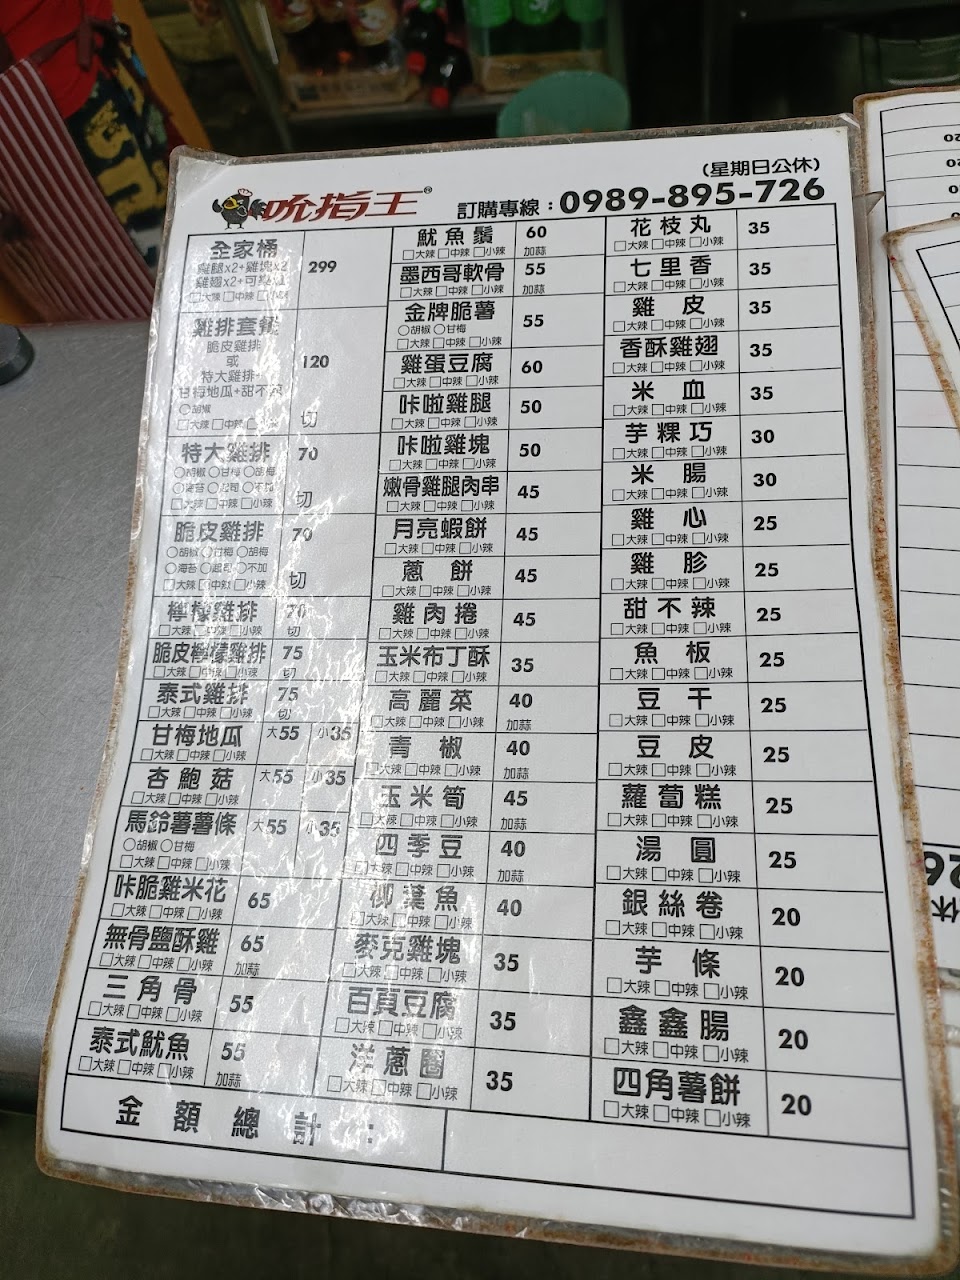 (星期日公休)
吮指王®
訂購專線：0989-895-726
全家桶 299
雞腿x2+雞塊x2
雞翅x2+可樂x1
□大辣□中辣□小辣
雞排套餐 120
脆皮雞排
或
特大雞排+
甘梅地瓜+甜不辣
○胡椒
□大辣□中辣□小辣 切
特大雞排 70
○胡椒○甘梅○胡梅
○海苔○起司○不加
□大辣□中辣□小辣 切
脆皮雞排 70
○胡椒○甘梅○胡梅
○海苔○起司○不加
□大辣□中辣□小辣 切
檸檬雞排 70
□大辣□中辣□小辣 切
脆皮檸檬雞排 75
□大辣□中辣□小辣 切
泰式雞排 75
□大辣□中辣□小辣 切
甘梅地瓜 大55 小35
□大辣□中辣□小辣
杏鮑菇 大55 小35
□大辣□中辣□小辣
馬鈴薯薯條 大55 小35
○胡椒○甘梅
□大辣□中辣□小辣
咔脆雞米花 65
□大辣□中辣□小辣
無骨鹽酥雞 65
□大辣□中辣□小辣 加蒜
三角骨 55
□大辣□中辣□小辣
泰式魷魚 55
□大辣□中辣□小辣 加蒜
魷魚鬚 60
□大辣□中辣□小辣 加蒜
墨西哥軟骨 55
□大辣□中辣□小辣 加蒜
金牌脆薯 55
○胡椒○甘梅
□大辣□中辣□小辣
雞蛋豆腐 60
□大辣□中辣□小辣
咔啦雞腿 50
□大辣□中辣□小辣
咔啦雞塊 50
□大辣□中辣□小辣
嫩骨雞腿肉串 45
□大辣□中辣□小辣
月亮蝦餅 45
□大辣□中辣□小辣
蔥餅 45
□大辣□中辣□小辣
雞肉捲 45
□大辣□中辣□小辣
玉米布丁酥 35
□大辣□中辣□小辣
高麗菜 40
□大辣□中辣□小辣 加蒜
青椒 40
□大辣□中辣□小辣 加蒜
玉米筍 45
□大辣□中辣□小辣 加蒜
四季豆 40
□大辣□中辣□小辣 加蒜
柳葉魚 40
□大辣□中辣□小辣
麥克雞塊 35
□大辣□中辣□小辣
百頁豆腐 35
□大辣□中辣□小辣
洋蔥圈 35
□大辣□中辣□小辣
花枝丸 35
□大辣□中辣□小辣
七里香 35
□大辣□中辣□小辣
雞皮 35
□大辣□中辣□小辣
香酥雞翅 35
□大辣□中辣□小辣
米血 35
□大辣□中辣□小辣
芋粿巧 30
□大辣□中辣□小辣
米腸 30
□大辣□中辣□小辣
雞心 25
□大辣□中辣□小辣
雞胗 25
□大辣□中辣□小辣
甜不辣 25
□大辣□中辣□小辣
魚板 25
□大辣□中辣□小辣
豆干 25
□大辣□中辣□小辣
豆皮 25
□大辣□中辣□小辣
蘿蔔糕 25
□大辣□中辣□小辣
湯圓 25
□大辣□中辣□小辣
銀絲卷 20
□大辣□中辣□小辣
芋條 20
□大辣□中辣□小辣
鑫鑫腸 20
□大辣□中辣□小辣
四角薯餅 20
□大辣□中辣□小辣
金額總計：